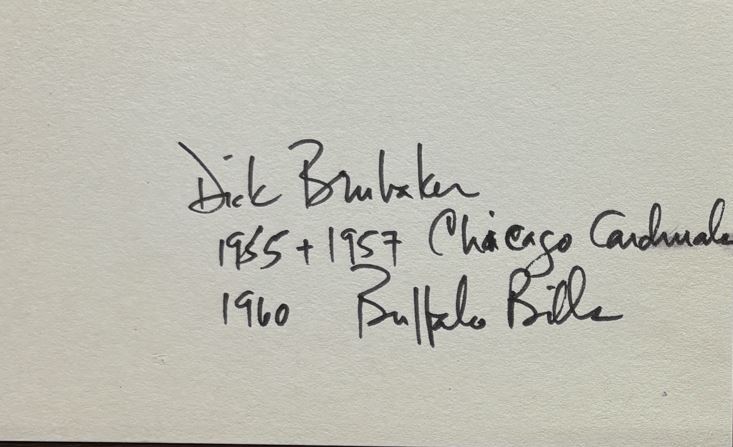 Dick Brubaker
1955 + 1957 Chicago Cardinals
1960 Buffalo Bills